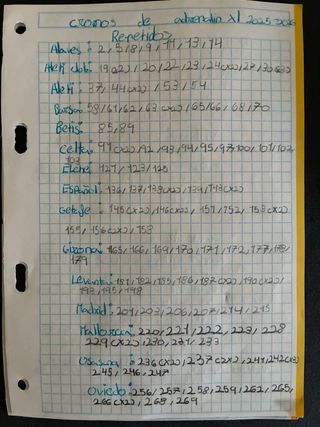 cromos de adrenalin XL 2025-2026
Repetidos
Alaves: 2, 5, 8, 9, 11, 13, 14
Aleti club: 19(x2), 20, 22, 23, 24(x2), 27, 30
Aleti: 37, 44(x2), 53, 54
58, 61, 62, 63(x2), 65, 66, 68, 70
Betis: 85, 89
Celta: 91(x2), 92, 93, 94, 95, 97, 100, 101, 102,
103
Elche: 121, 123, 125
Español: 136, 137, 138(x2), 139, 143(x2)
Getafe: 145(x2), 146(x2), 151, 152, 153(x2)
155, 156(x2), 158
Girona: 165, 166, 169, 170, 171, 172, 177, 178,
179
Levante: 181, 182, 185, 186, 187(x2), 190(x2),
193, 195, 198
Madrid: 201, 203, 206, 207, 214, 215
Mallorca: 220, 221, 222, 223, 228
229(x2), 230, 231, 233
Osasuna: 236(x2), 237(x2), 241, 242(x3)
245, 246, 247
Oviedo: 256, 257, 258, 259, 262, 265,
266(x2), 268, 269